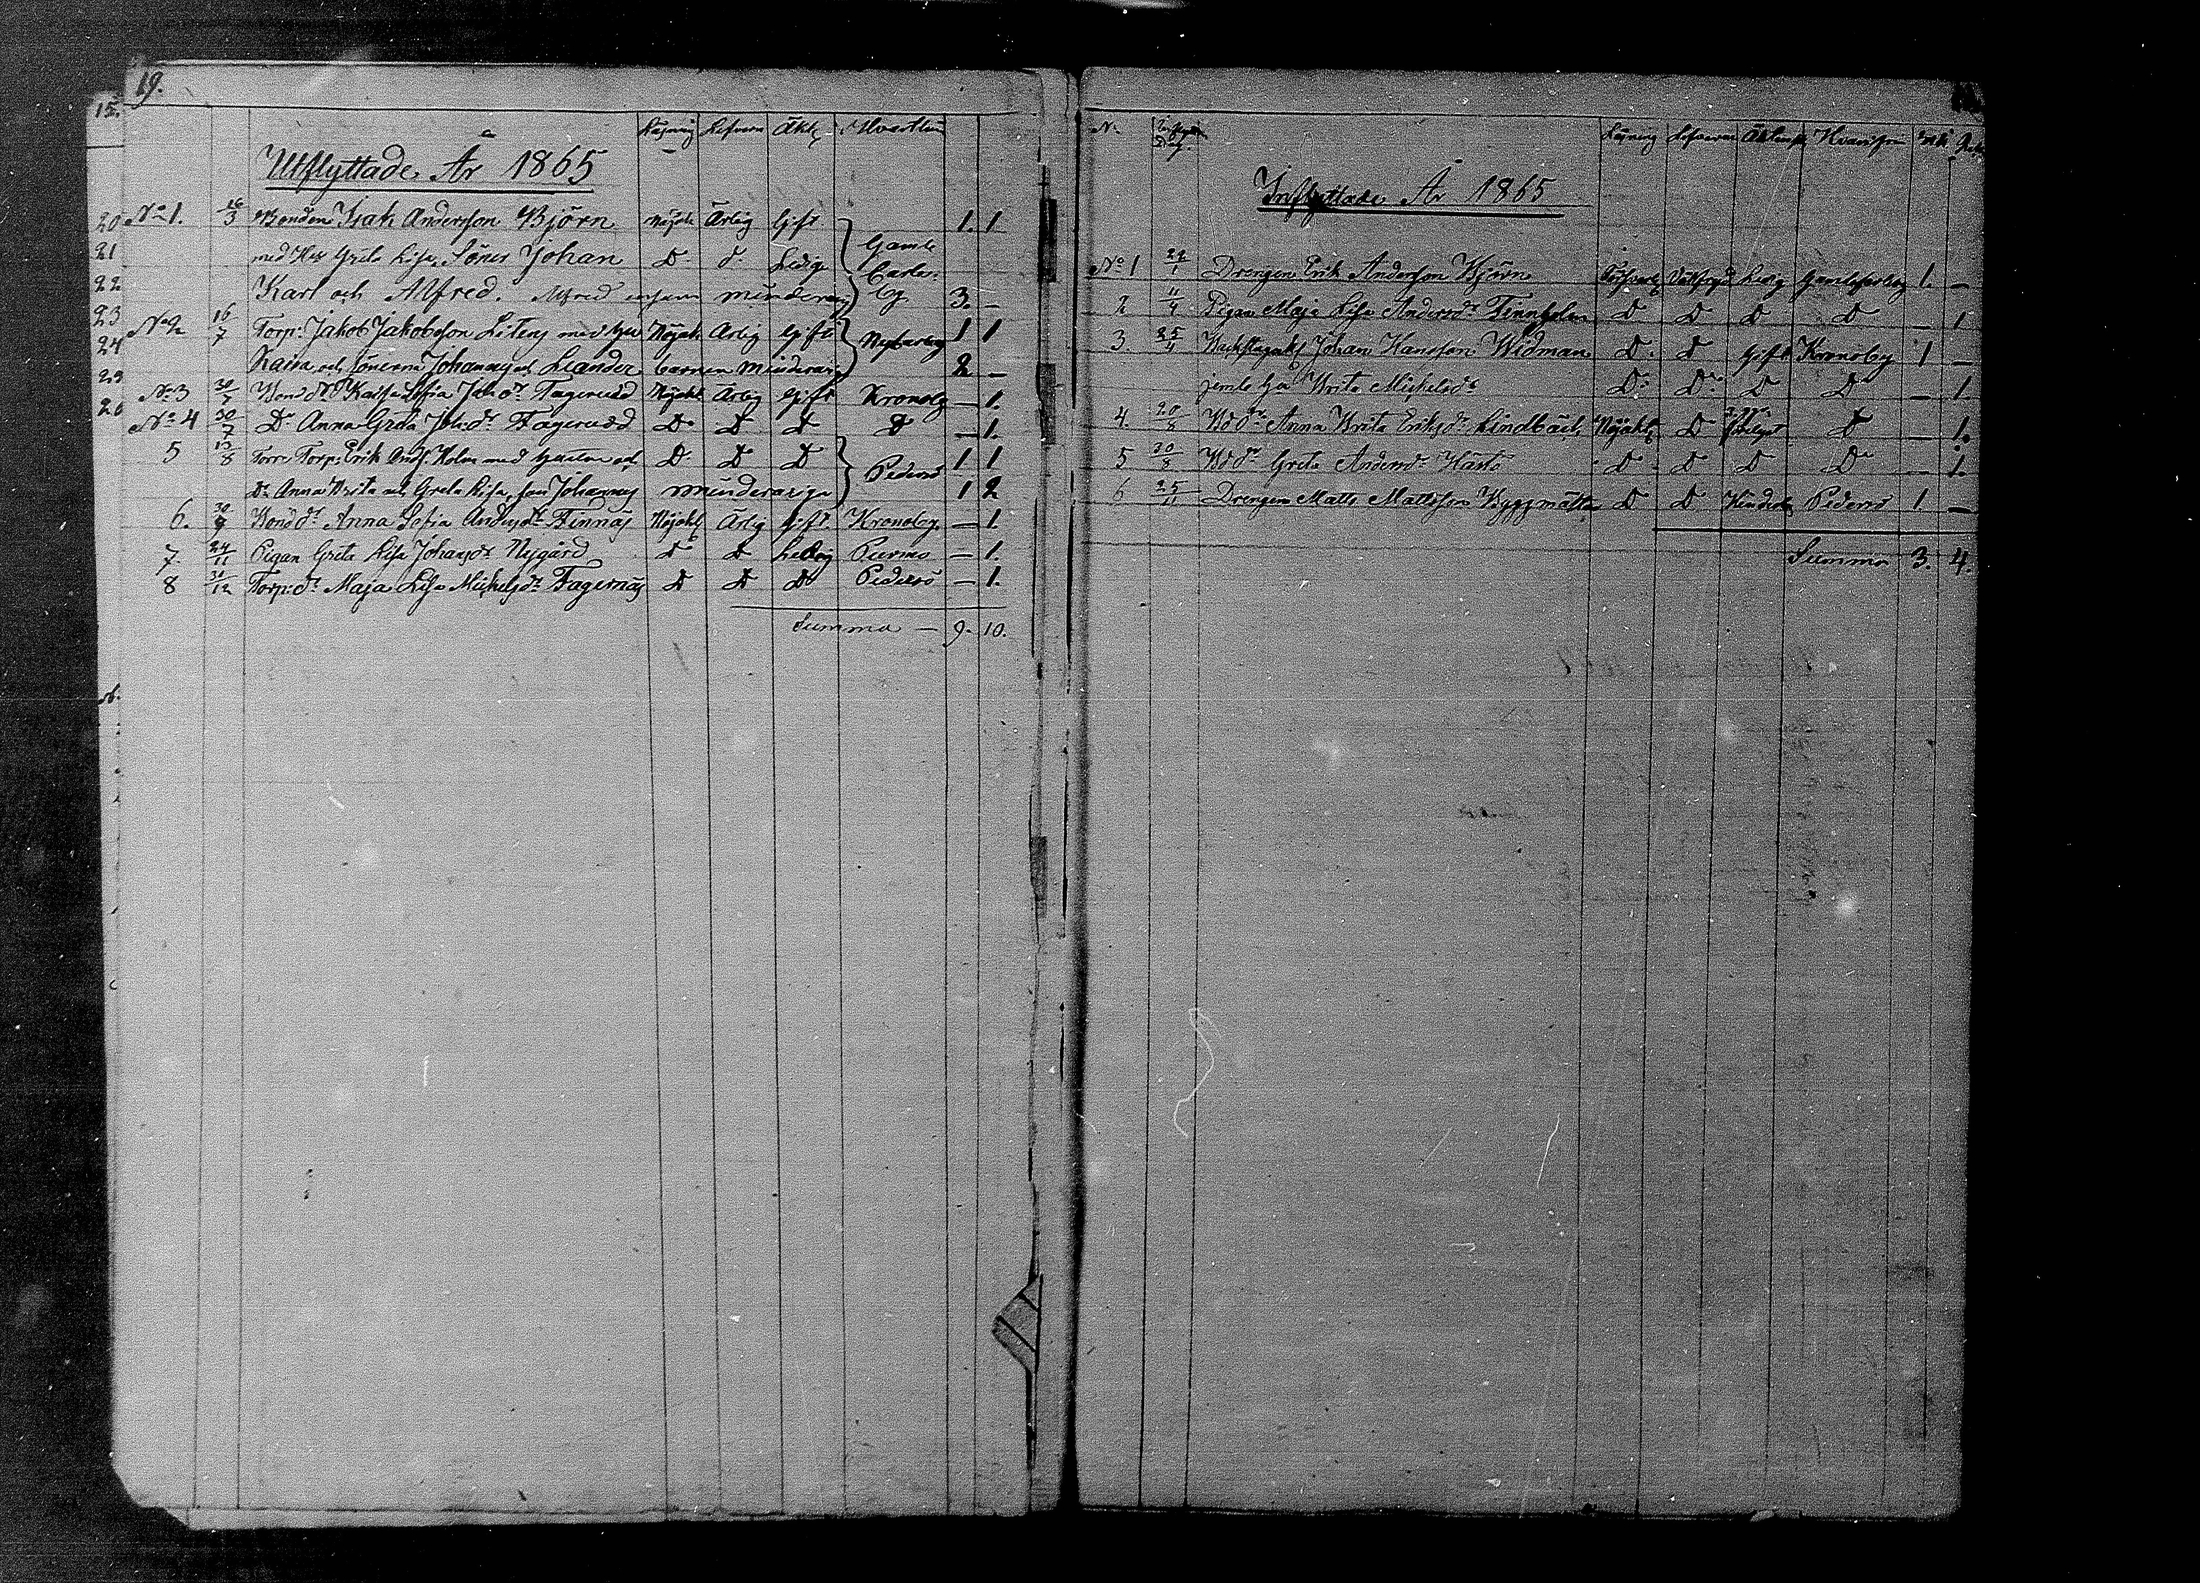 19.
15.
Läsning Lefvern Äkt. Hvarthän
Utflyttade År 1865
20 No 1. 16/3 Bonden Isak Andersson Björn Nöjakt Ärlig Gift 1. 1
21 med Hu Greta Lisa, Söner Johan Do do Ledige Gamle
22 Karl och Alfred. Alfred ensam minderårig Carle by 3. —
23 No 2 16/7 Torp: Jakob Jakobsson Litens med hu Nöjakt Ärlig Gift Nykarleby 1 1
24 Kaisa och Sönerna Johannes och Leander barnen minderårig 2 —
No 3 30/7 Bond dr Kajsa Sofia Joh dr Fagerudd Nöjakt Ärlig Gift Kronoby — 1.
No 4 30/7 Do Anna Greta Joh: dr Fagerudd Do D D D — 1.
5 /8 Torp: Erik And: Holm med hustrun och D D D 1 1
Dr Anna Brita och Greta Lisa, son Johannes minderåriga Pedersö 1 2
6. 30/9 Bond dr Anna Sofia Anders dr Finnäs Nöjakt Ärlig Gift Kronoby — 1.
7. 24/11 Pigan Greta Lisa Johans dr Nygård D D Ledig Purmo — 1.
8 31/12 Torp: dr Maja Lisa Michels dr Fagernäs D D D Pedersö — 1.
Summa — 9. 10.
N. Läsning Lefverne Äktensk Hvarifrån
Inflyttade År 1865
No 1 22/1 Drengen Erik Andersson Björn Ledig Gamlekarleby 1. —
2 11/4 Pigan Maja Lisa Anders dr Finnholm D D D D — 1
3. 25/4 Johan Hansson Widman D. D Gift Kronoby 1 —
jemte hu Brita Michels dr D: D: D D — 1.
4. 20/8 Bd dr Anna Brita Eriks dr Lindbäck Nöjakt D D — 1.
5 30/8 Bd dr Greta Anders dr Hästö D D D D — 1.
6 25/11 Drengen Matts Mattsson Byggmästa D D Pedersö 1. —
Summa 3. 4.